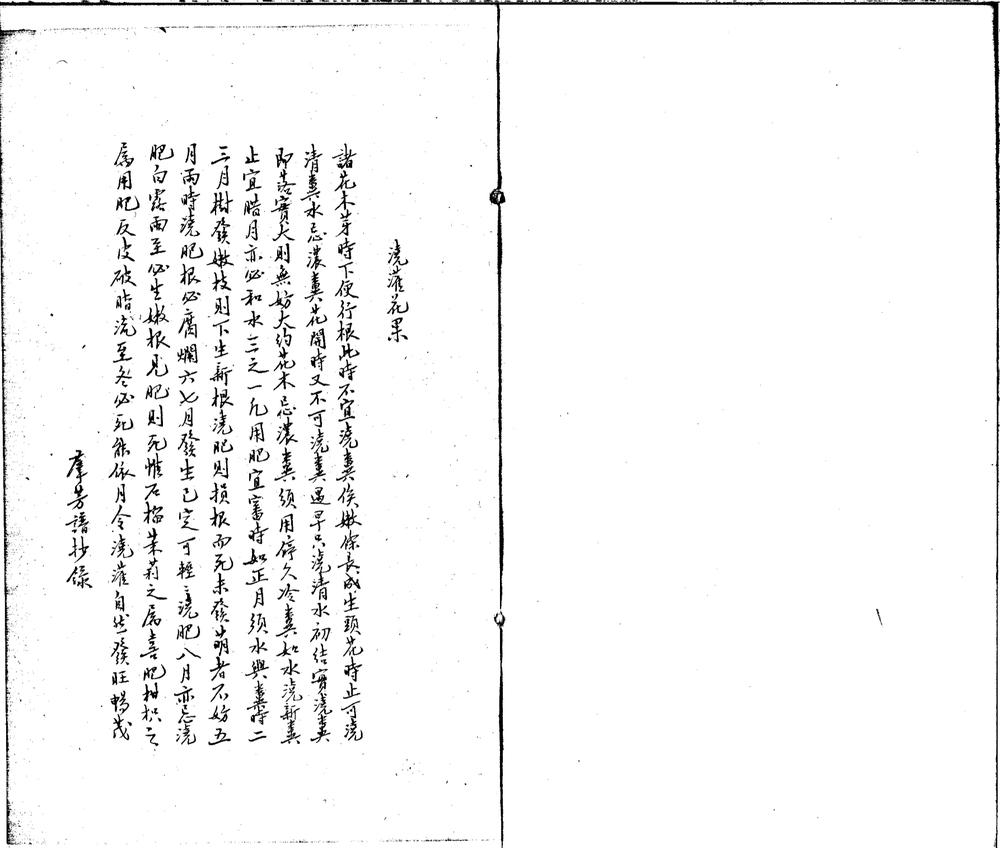 澆灌花果
諸花木芽時下便行根此時不宜澆糞俟嫩條長成生頭花時止可澆
清糞水忌濃糞花開時又不可澆糞遇旱只澆清水初結實澆糞
即落實大則無妨大約花木忌濃糞須用停久冷糞如水澆新糞
止宜腊月亦必和水三之一凡用肥宜審時如正月須水與糞時二
三月樹發嫩枝則下生新根澆肥則損根而死未發萌者不妨五
月雨時澆肥根必腐爛六七月發生已定可輕〻澆肥八月亦忌澆
肥白露雨至必生嫩根見肥則死惟石榴茉莉之屬喜肥柑枳之
屬用肥反皮破脂流至冬必死能依月令澆灌自然發旺暢茂
羣芳譜抄錄